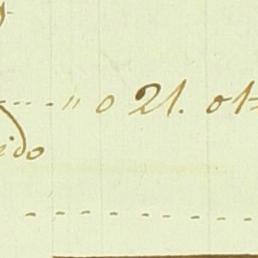 ---- " 0 21. 01=
ido
- - - - - - - - -